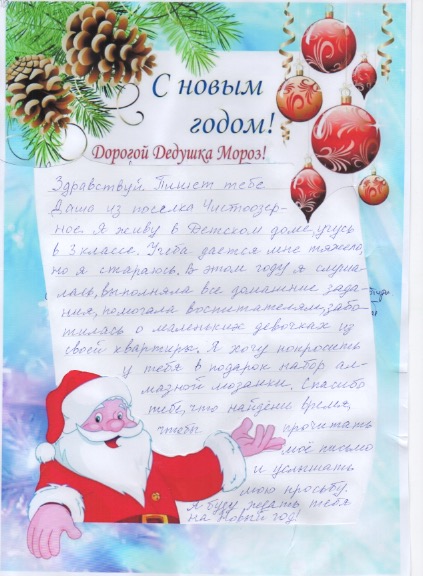 С новым
годом!
Дорогой Дедушка Мороз!
Здравствуй. Пишет тебе
Даша из поселка Чистоозер-
ное. Я живу в Детском доме, учусь
в 3 классе. Учеба дается мне тяжело,
но я стараюсь. В этом году я слуша-
лась, выполняла все домашние зада-
ния, помогала воспитателям, забо-
тилась о маленьких девочках из
своей квартиры. Я хочу попросить
у тебя в подарок набор ал-
мазной мозаики. Спасибо
тебе, что найдёшь время,
чтобы прочитать
моё письмо
и услышать
мою просьбу.
Я буду ждать тебя
на Новый год!